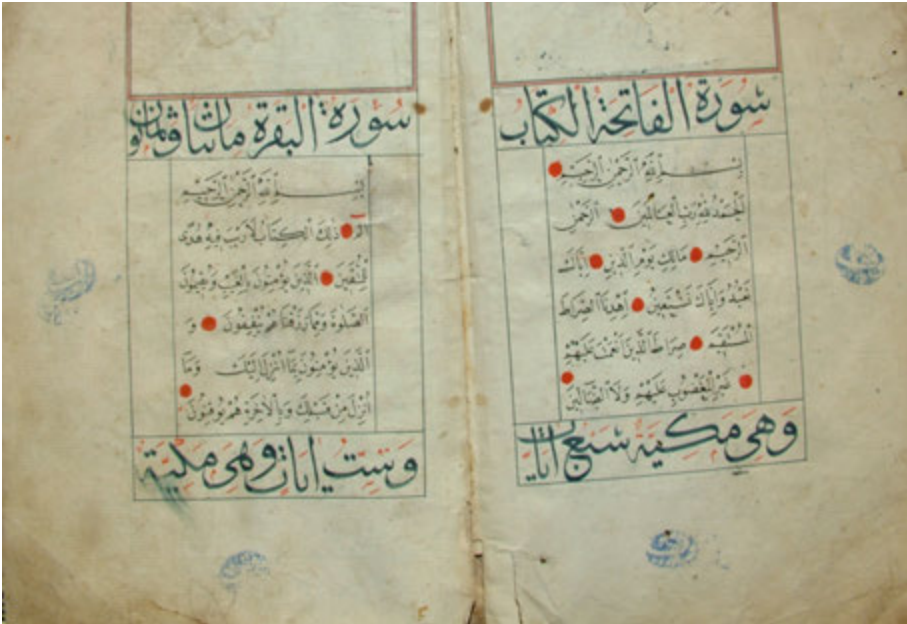 سورة الفاتحة الكتاب
بسم الله الرحمن الرحيم
الحمد لله رب العالمين الرحمن
الرحيم مالك يوم الدين اياك
نعبد واياك نستعين اهدنا الصراط
المستقيم صراط الذين انعمت عليهم
غير المغضوب عليهم ولا الضالين
وهي مكية سبع ايات
سورة البقرة مائتا وثمانون
بسم الله الرحمن الرحيم
الم ذلك الكتاب لا ريب فيه هدى
للمتقين الذين يؤمنون بالغيب ويقيمون
الصلوة ومما رزقناهم ينفقون و
الذين يؤمنون بما انزل اليك وما
انزل من قبلك وبالاخرة هم يوقنون
وست ايات وهي مكية